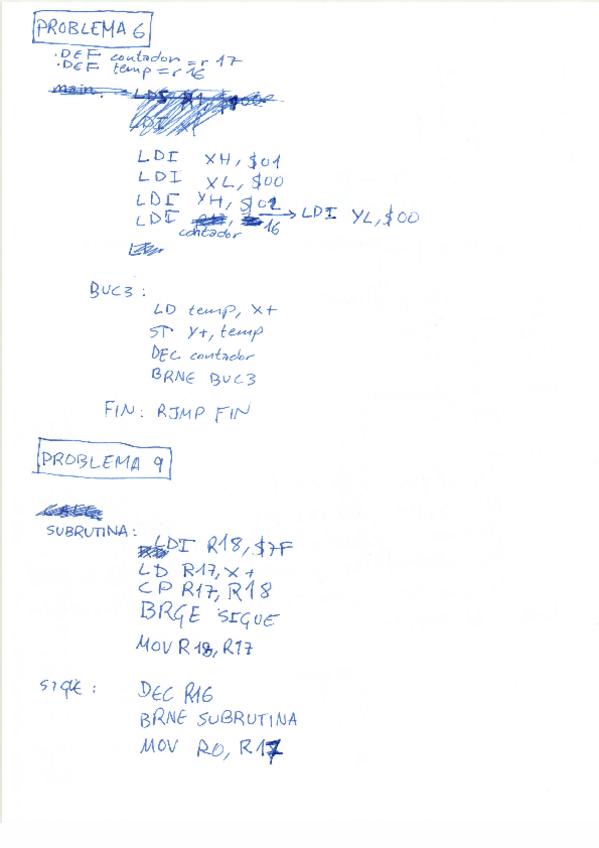 PROBLEMA 6
.DEF contador = r17
.DEF temp = r16
LDI XH, $01
LDI XL, $00
LDI YH, $02
LDI contador, 16 → LDI YL, $00
BUC3 :
LD temp, X+
ST Y+, temp
DEC contador
BRNE BUC3
FIN: RJMP FIN
PROBLEMA 9
SUBRUTINA:
LDI R18, $7F
LD R17, X+
CP R17, R18
BRGE SIGUE
MOV R18, R17
SIGUE :
DEC R16
BRNE SUBRUTINA
MOV R0, R17